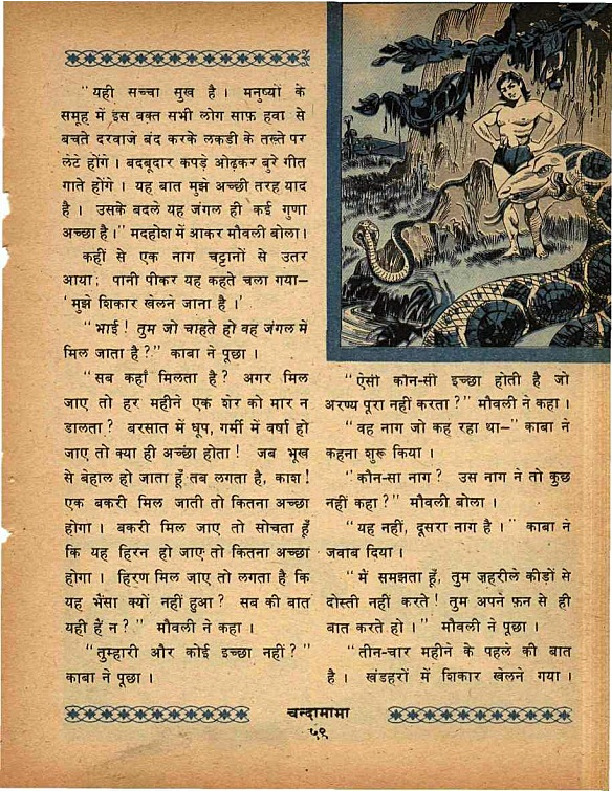 "यही सच्चा सुख है। मनुष्यों के
समूह में इस वक्त सभी लोग साफ़ हवा से
बचते दरवाजे बंद करके लकडी के तख्ते पर
लेटे होंगे। बदबूदार कपड़े ओढ़कर बुरे गीत
गाते होंगे। यह बात मुझे अच्छी तरह याद
है। उसके बदले यह जंगल ही कई गुणा
अच्छा है।" मदहोश में आकर मौवली बोला।
कहीं से एक नाग चट्टानों से उतर
आया; पानी पीकर यह कहते चला गया–
'मुझे शिकार खेलने जाना है।'
"भाई! तुम जो चाहते हो वह जंगल में
मिल जाता है?" काबा ने पूछा।
"सब कहाँ मिलता है? अगर मिल
जाए तो हर महीने एक शेर को मार न
डालता? बरसात में धूप, गर्मी में वर्षा हो
जाए तो क्या ही अच्छा होता! जब भूख
से बेहाल हो जाता हूँ तब लगता है, काश!
एक बकरी मिल जाती तो कितना अच्छा
होगा। बकरी मिल जाए तो सोचता हूँ
कि यह हिरन हो जाए तो कितना अच्छा
होगा। हिरण मिल जाए तो लगता है कि
यह भैंसा क्यों नहीं हुआ? सब की बात
यही हैं न?" मौवली ने कहा॥
"तुम्हारी और कोई इच्छा नहीं?"
काबा ने पूछा।
"ऐसी कौन-सी इच्छा होती है जो
अरण्य पूरा नहीं करता?" मौवली ने कहा।
"वह नाग जो कह रहा था–" काबा ने
कहना शुरू किया।
"कौन-सा नाग? उस नाग ने तो कुछ
नहीं कहा?" मौवली बोला।
"यह नहीं, दूसरा नाग है।" काबा ने
जवाब दिया।
"में समझता हूँ, तुम ज़हरीले कीड़ों से
दोस्ती नहीं करते! तुम अपने फ़न से ही
बात करते हो।" मौवली ने पूछा।
"तीन-चार महीने के पहले की बात
है। खंडहरों में शिकार खेलने गया।
चन्दामामा
५९